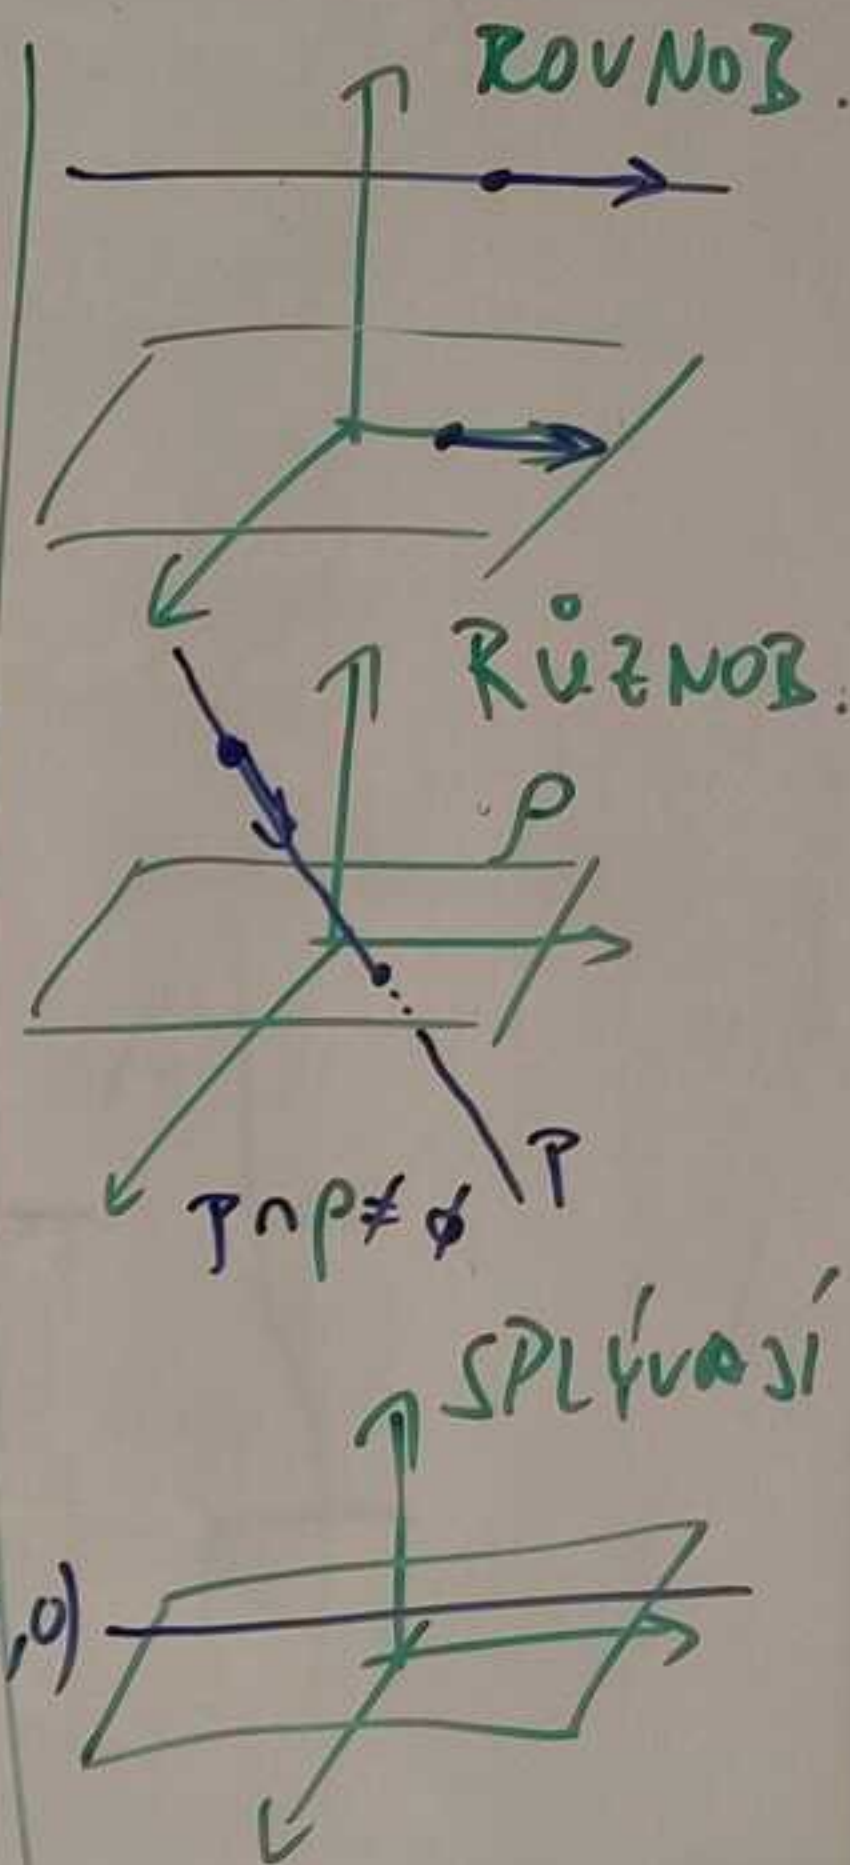 ROVNOB.
RŮZNOB.
ρ
p
p∩ρ≠∅
SPLÝVAJÍ
,0)